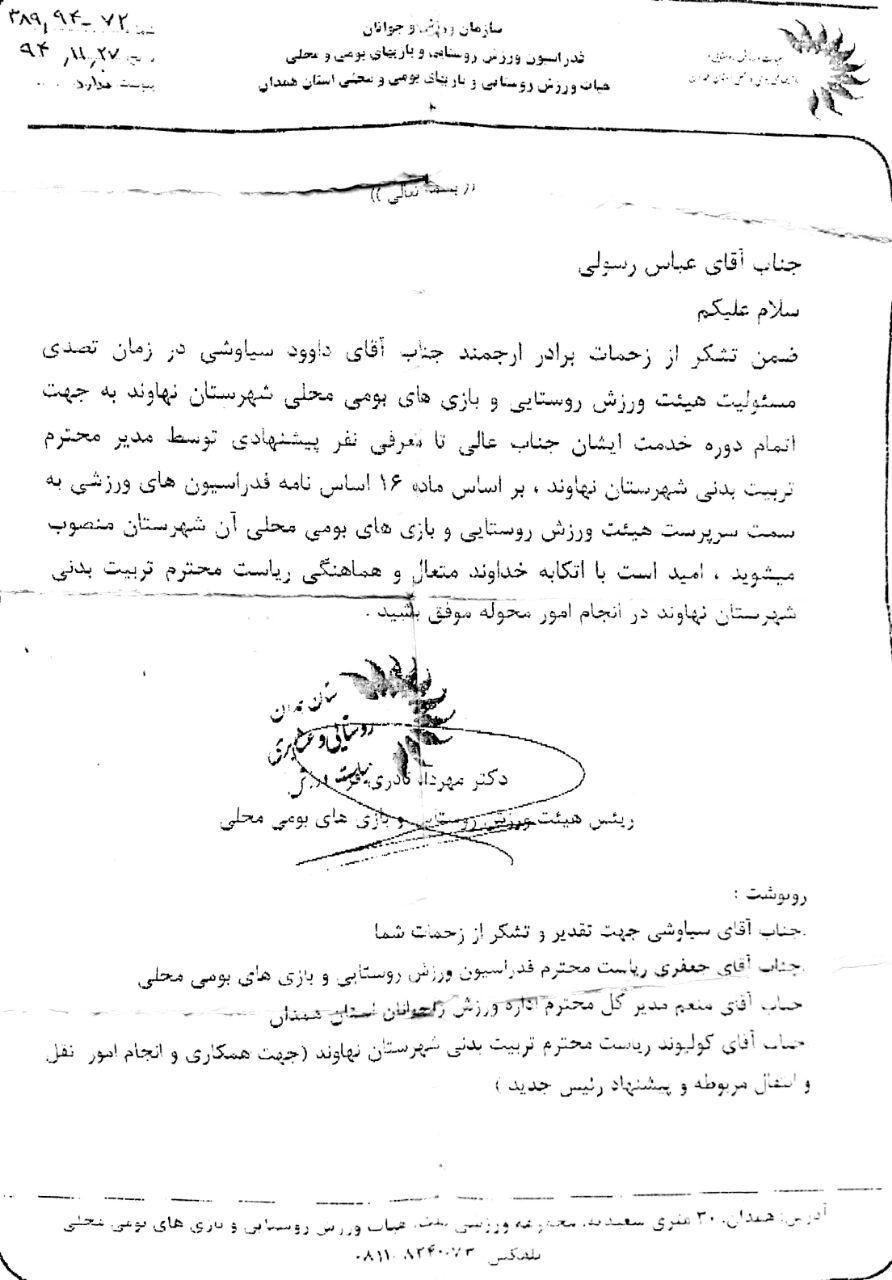 سازمان ورزش و جوانان
فدراسیون ورزش روستایی و بازیهای بومی و محلی
هیات ورزش روستایی و بازیهای بومی و محلی استان همدان
۳۸۹٫۹۴-۷۲
۹۴٫۱۱٫۲۷
پیوست ندارد
((بسمه تعالی))
جناب آقای عباس رسولی
سلام علیکم
ضمن تشکر از زحمات برادر ارجمند جناب آقای داوود سیاوشی در زمان تصدی
مسئولیت هیئت ورزش روستایی و بازی های بومی محلی شهرستان نهاوند به جهت
اتمام دوره خدمت ایشان جناب عالی تا معرفی نفر پیشنهادی توسط مدیر محترم
تربیت بدنی شهرستان نهاوند ، بر اساس ماده ۱۶ اساس نامه فدراسیون های ورزشی به
سمت سرپرست هیئت ورزش روستایی و بازی های بومی محلی آن شهرستان منصوب
میشوید ، امید است با اتکابه خداوند متعال و هماهنگی ریاست محترم تربیت بدنی
شهرستان نهاوند در انجام امور محوله موفق باشید .
ستان همدان
روستایی و عشایری
هیات ورزش
دکتر مهرداد نادری فر
رئیس هیئت ورزش روستایی و بازی های بومی محلی
رونوشت :
.جناب آقای سیاوشی جهت تقدیر و تشکر از زحمات شما
.جناب آقای جعفری ریاست محترم فدراسیون ورزش روستایی و بازی های بومی محلی
جناب آقای منعم مدیر کل محترم اداره ورزش و جوانان استان همدان
جناب آقای کولیوند ریاست محترم تربیت بدنی شهرستان نهاوند (جهت همکاری و انجام امور نقل
و انتقال مربوطه و پیشنهاد رئیس جدید )
آدرس: همدان، ۳۰ متری سعیدیه، مجموعه ورزشی هیات ورزش روستایی و بازی های بومی محلی
تلفکس ۸۲۴۰۰۷۳-۰۸۱۱